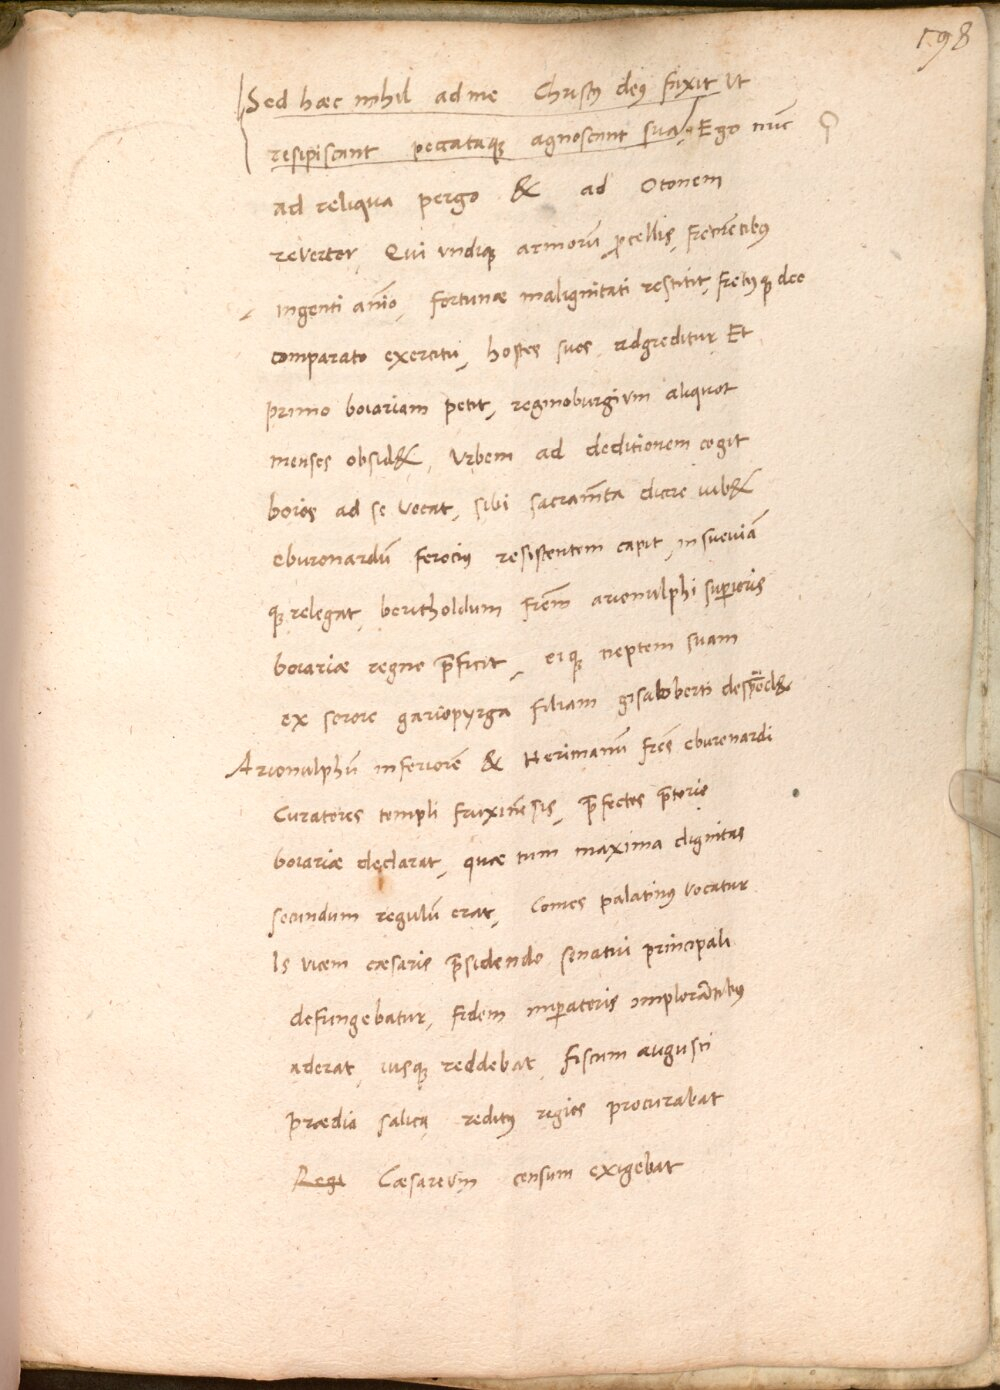 198
Sed hæc nihil ad me Christꝰ deꝰ faxit Vt
resipiscant peccataqꝫ agnoscant sua, Ego nūc
ad reliqua pergo & ad Otonem
revertor, Qui vndiqꝫ armorū ꝓcellis, fremētibꝰ
Ingenti aīo, fortunæ malignitati restitit, fretꝰqꝫ deo
comparato exercitu, hostes suos adgreditur Et
primo boiariam petit, reginoburgium aliquot
menses obsid&, Vrbem ad deditionem cogit
boios ad se vocat, sibi sacramēta dicere iub&
eburonardū ferociꝰ resistentem capit, in sueviā
qꝫ relegat, bertholdum frēm arionulphi suꝑioris
boiariæ regno p̄ficit, eiqꝫ neptem suam
ex sorore gariopyrga filiam gisaloberti despōd&
Arionulphū inferiorē & Herimanū frēs eburonardi
Curatores templi fruxinēsis, p̄fectos p̄torio
boiariæ declarat, quæ tum maxima dignitas
secundum regulū erat, Comes palatinꝰ vocatur
Is vicem cæsaris p̄sidendo senatui principali
defungebatur, fidem imꝑatoris implorātibꝰ
aderat, iusqꝫ reddebat, fiscum augusti
prædia salica reditꝰ regios procurabat
Regi Cæsareum censum exigebat